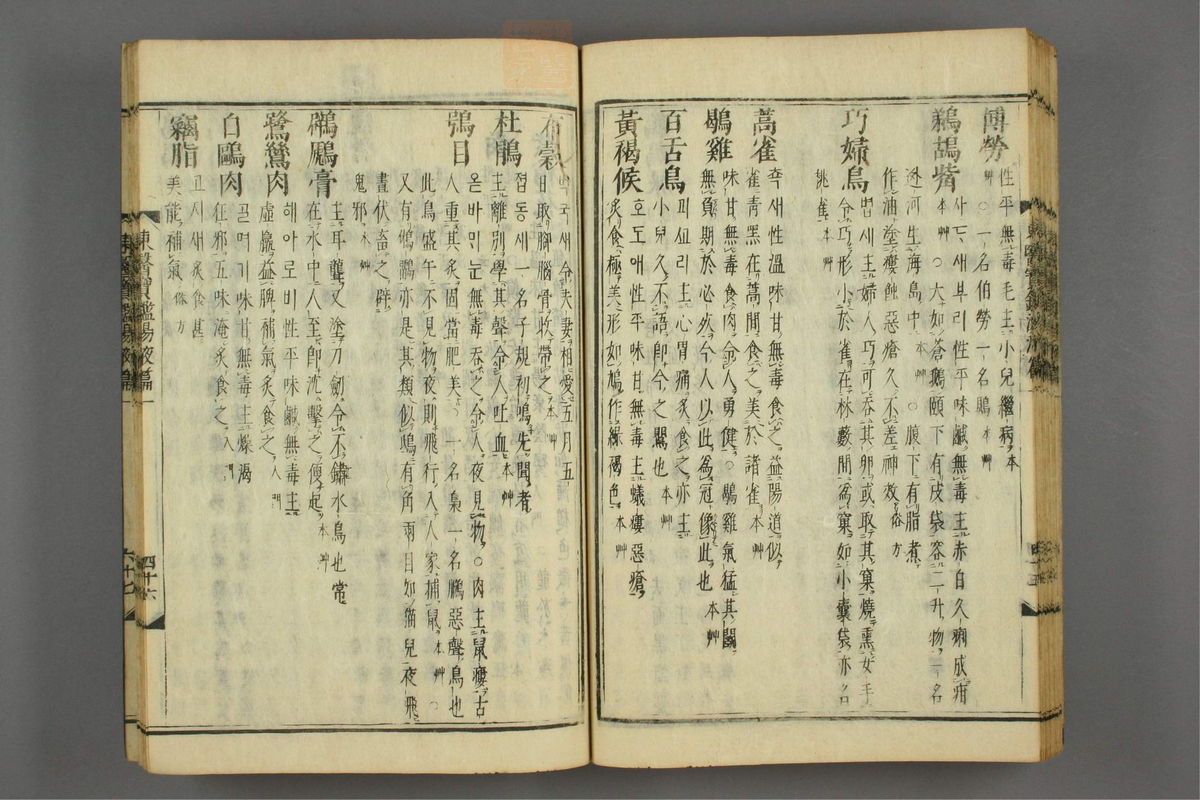 博勞
性平無毒毛主小兒繼病本
艸○一名伯勞一名鵙本艸
鵜鴣觜
사ᄃᆞ새부리性平味鹹無毒主赤白久痢成疳
本艸○大如蒼鵝頤下有皮袋容二升物一名
逃河生海島中本艸○腹下有脂煮
作油塗癰蝕惡瘡久不差神效俗方
巧婦鳥
뱝새主婦人巧可吞其卵或取其窠燒熏女手
令巧形小於雀在林藪間爲窠如小囊袋亦名
桃雀本艸
蒿雀
촉새性溫味甘無毒食之益陽道似
雀靑黑在蒿間食之美於諸雀本艸
鶡雞
味甘無毒食肉令人勇健○鶡雞氣猛其鬪
無負期於必死今人以此爲冠像此也本艸
百舌鳥
괴ᄭᅬ리主心胃痛炙食之亦主
小兒久不語卽今之鸎也本艸
黃褐候
호도애性平味甘無毒主蟻瘻惡瘡
炙食極美形如鳩作綠褐色本艸
布穀
벅국새令夫妻相愛五月五
日取腳腦骨收帶之本艸
杜鵑
졉동새一名子規初鳴先聞者
主離別學其聲令人吐血本艸
鴞目
온바믜눈無毒吞之令人夜見物○肉主鼠瘻古
人重其炙固當肥美一名梟一名鵩惡聲鳥也
此鳥盛午不見物夜則飛行入人家捕鼠本艸○
又有鵂鶹亦是其類似鴟有角兩目如猫兒夜飛
晝伏畜之辟
鬼邪本艸
鸊鷉膏
主耳聾又塗刀劍令不鏽水鳥也常
在水中人至卽沈擊之便起本艸
鷺鷥肉
해아로비性平味鹹無毒主
虛羸益脾補氣炙食之入門
白鷗肉
ᄀᆞᆯ며기味甘無毒主燥渴
狂邪五味淹炙食之入門
竊脂
고지새炙食甚
美能補氣俗方
東醫寶鑑湯液篇一
四十六
六十七